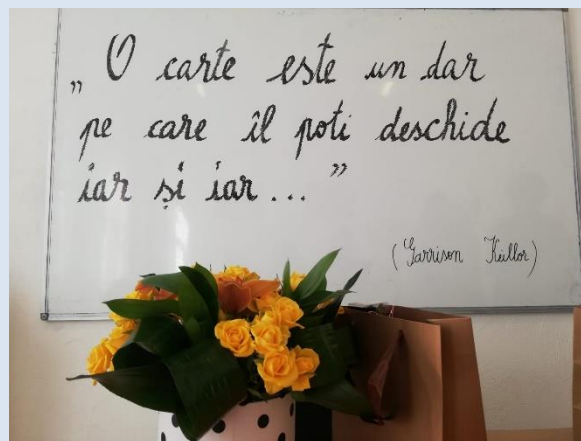 „O carte este un dar
pe care îl poti deschide
iar și iar..."
(Garrison Keillor)